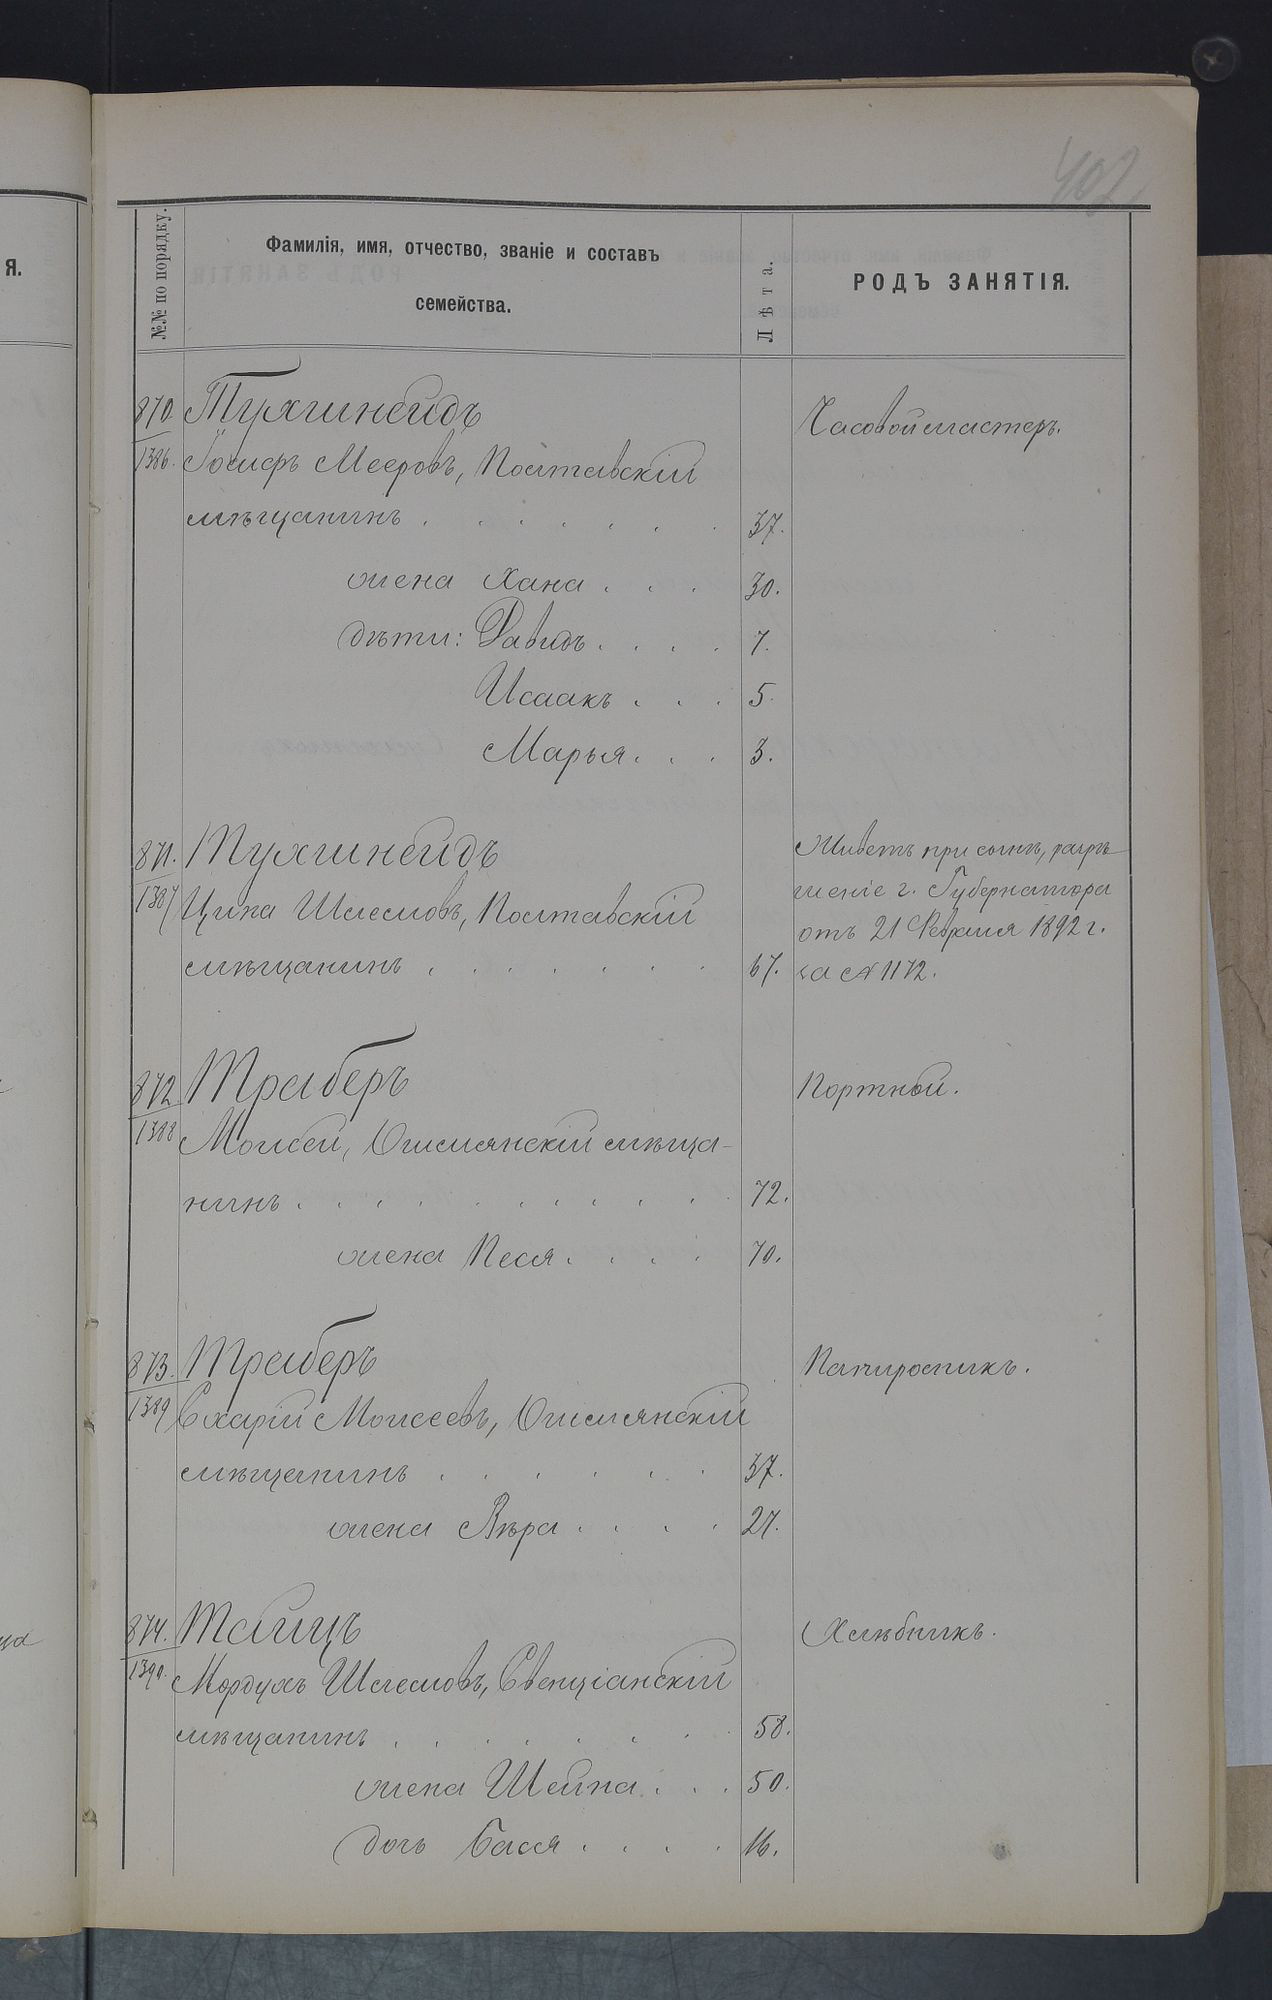 402
Я.
№№ по порядку.
Фамилія, имя, отчество, званіе и составъ
семейства.
Лѣта.
РОДЪ ЗАНЯТІЯ.
870. Тухшнейдъ Часовой мастеръ.
1386. Іосифъ Мееровъ, Полтавскій
мѣщанинъ . . . . . . . 37.
жена Хана . . . 30.
дѣти: Давидъ . . . . 7.
Исаакъ . . . 5.
Марья . . . 3.
871. Тухшнейдъ Живетъ при сынѣ, разрѣ-
1387 Шлемовъ, Полтавскій шеніе г. Губернатора
отъ 21 Февраля 1892 г.
мѣщанинъ . . . . . . . 67. за № 1172.
872 Трайберъ Портной.
1388 Моисей, Ошмянскій мѣща-
нинъ . . . . . . . . . . 72.
жена Песя . . . . 70.
873. Трайберъ Папиросникъ.
1389 Схарій Моисеевъ, Ошмянскій
мѣщанинъ . . . . . . 37.
жена Вѣра . . . . 27.
874. Тайцъ Хлѣбникъ.
1390. Мордухъ Шлемовъ, Свенціанскій
мѣщанинъ . . . . . . . . 58.
жена Шейна . . . 50.
дочь Бася . . . . 16.